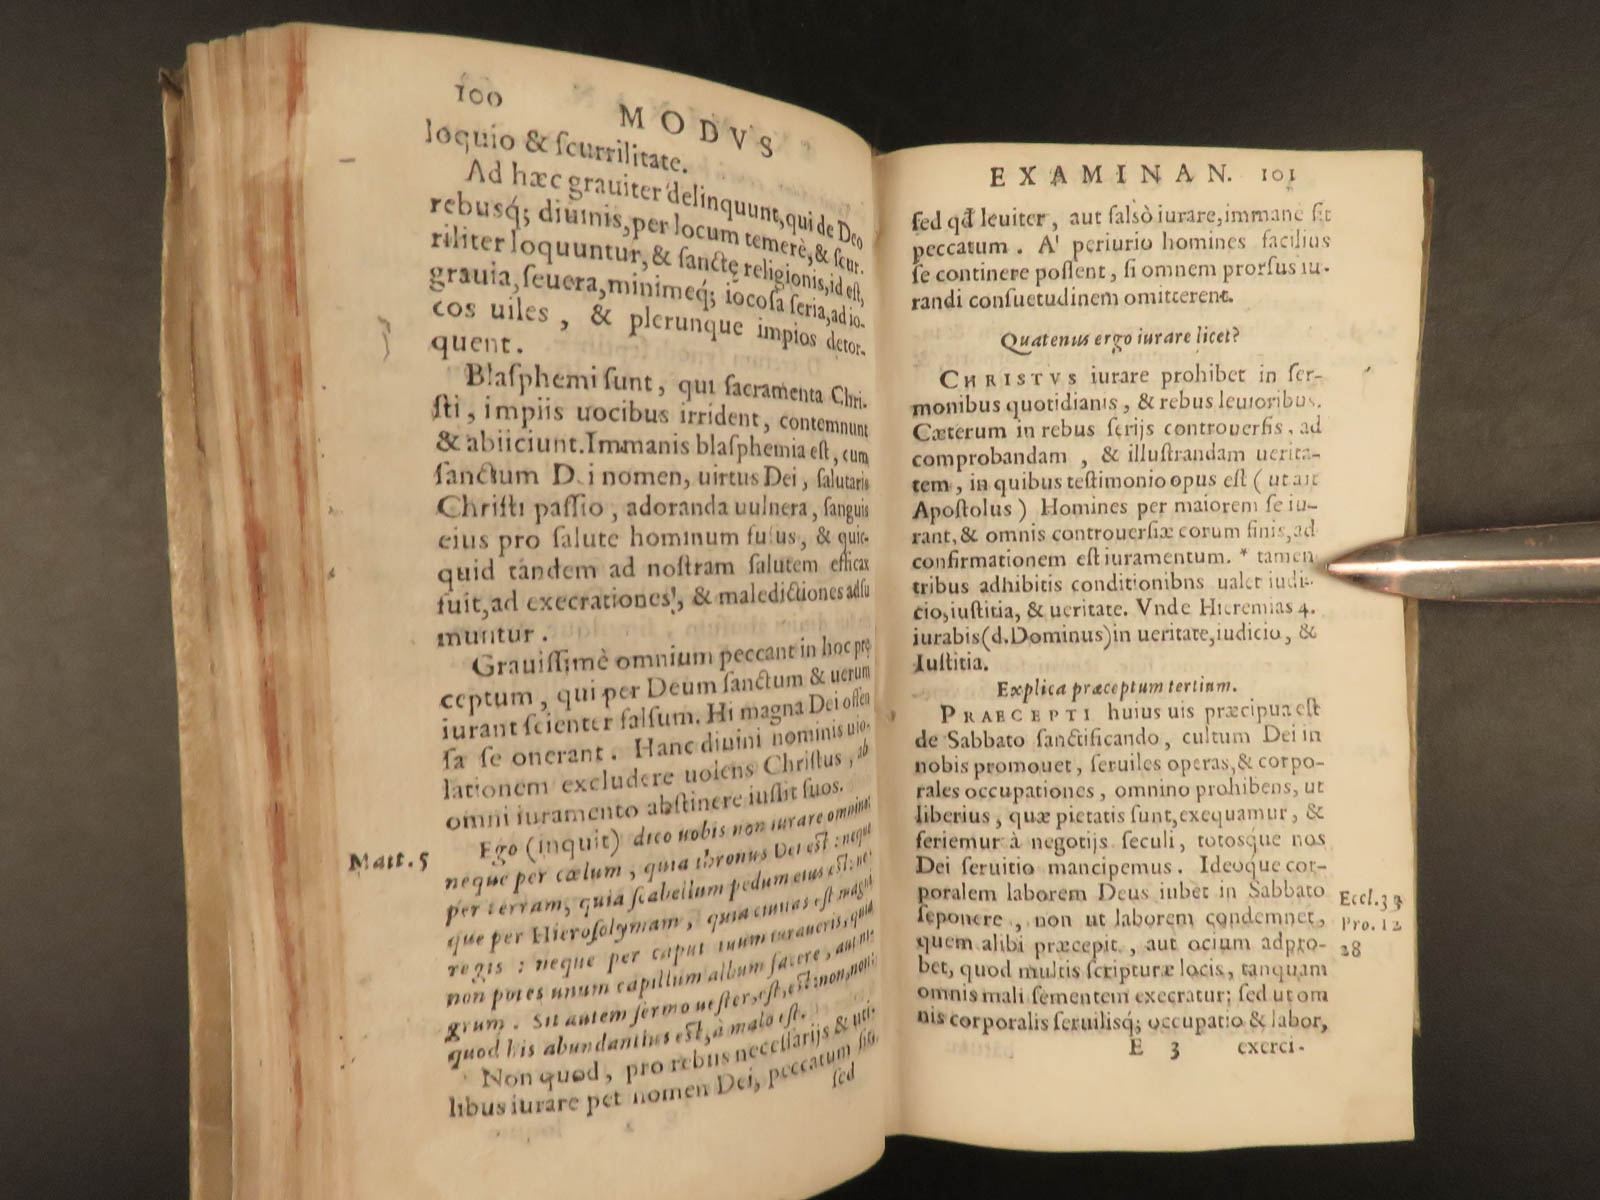 100
MODVS
loquio & ſcurrilitate.
Ad hæc grauiter delinquunt, qui de Deo
rebusq́; diuinis, per locum temerè, & ſcur-
riliter loquuntur, & ſanctę religionis, id eſt,
grauia, ſeuera, minimeq́; iocoſa ſeria, ad io-
cos uiles, & plerunque impios detor-
quent.
Blaſphemi ſunt, qui ſacramenta Chri-
ſti, impiis uocibus irrident, contemnunt
& abiiciunt. Immanis blaſphemia eſt, cum
ſanctum D i nomen, uirtus Dei, ſalutaris
Chriſti paſſio, adoranda uulnera, ſanguis
eius pro ſalute hominum fuſus, & quic-
quid tandem ad noſtram ſalutem efficax
fuit, ad execrationes, & maledictiones adſu
muntur.
Grauiſſimè omnium peccant in hoc prę
ceptum, qui per Deum ſanctum & uerum
iurant ſcienter falſum. Hi magna Dei offen
ſa ſe onerant. Hanc diuini nominis uio-
lationem excludere uolens Chriſtus, ab
omni iuramento abſtinere iuſſit ſuos.
Matt. 5
Ego (inquit) dico uobis non iurare omnino:
neque per cœlum, quia thronus Dei est: neque
per terram, quia ſcabellum pedum eius eſt: ne-
que per Hieroſolymam, quia ciuitas eſt magni
regis: neque per caput tuum iuraueris, quia
non potes unum capillum album facere, aut ni-
grum. Sit autem ſermo ueſter, eſt, eſt: non, non:
quod his abundantius eſt, à malo eſt.
Non quod, pro rebus neceſſarijs & uti-
libus iurare pet nomen Dei, peccatum ſit:
ſed
EXAMINAN. 101
ſed qd̃ leuiter, aut falsò iurare, immane ſit
peccatum. A' periurio homines facilius
ſe continere poſſent, ſi omnem prorſus iu-
randi conſuetudinem omitterent.
Quatenus ergo iurare licet?
CHRISTVS iurare prohibet in ſer-
monibus quotidianis, & rebus leuioribus.
Cæterum in rebus ſerijs controuerſis, ad
comprobandam, & illuſtrandam uerita-
tem, in quibus teſtimonio opus eſt (ut ait
Apoſtolus) Homines per maiorem ſe iu-
rant, & omnis controuerſiæ eorum finis, ad
confirmationem eſt iuramentum. * tamen
tribus adhibitis conditionibns ualet iudi-
cio, iuſtitia, & ueritate. Vnde Hieremias 4.
iurabis (d. Dominus) in ueritate, iudicio, &
Iuſtitia.
Explica præceptum tertium.
PRAECEPTI huius uis præcipua eſt
de Sabbato ſanctificando, cultum Dei in
nobis promouet, ſeruiles operas, & corpo-
rales occupationes, omnino prohibens, ut
liberius, quæ pietatis ſunt, exequamur, &
feriemur à negotijs ſeculi, totosque nos
Dei ſeruitio mancipemus. Ideoque cor-
poralem laborem Deus iubet in Sabbato
ſeponere, non ut laborem condemnet,
quem alibi præcepit, aut ocium adpro-
bet, quod multis ſcripturæ locis, tanquam
omnis mali ſementem execratur; ſed ut om
nis corporalis ſeruilisq́; occupatio & labor,
Eccl. 33
Pro. 12
28
E 3 exerci-